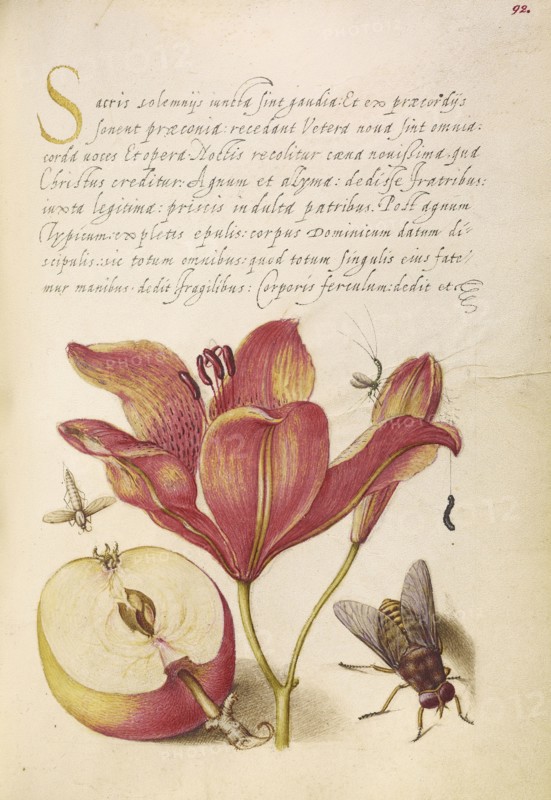 92.
Sacris solemnijs iuncta sint gaudia: Et ex præcordijs
sonent præconia: recedant Vetera nova sint omnia:
corda voces Et opera. Noctis recolitur cæna novissima. qua
Christus creditur: Agnum et azyma: dedisse fratribus:
iuxta legitima: priscis indulta patribus. Post agnum
Typicum: expletis epulis: corpus Dominicum datum di-
scipulis: sic totum omnibus: quod totum singulis eius fate-
mur manibus. dedit fragilibus: Corporis ferculum: dedit et